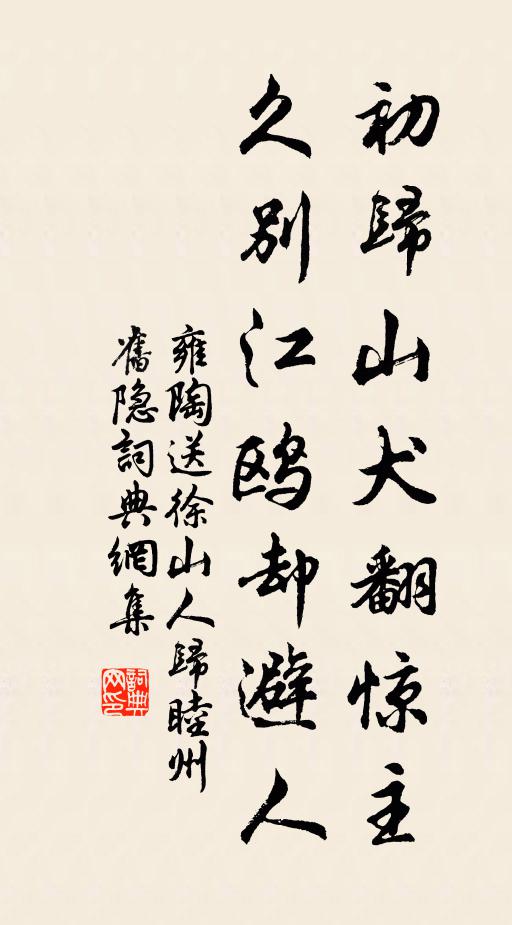 初歸山犬翻惊主
久別江鸥却避人
雍陶送徐山人歸睦州
舊隐詞典網集
詞典网印